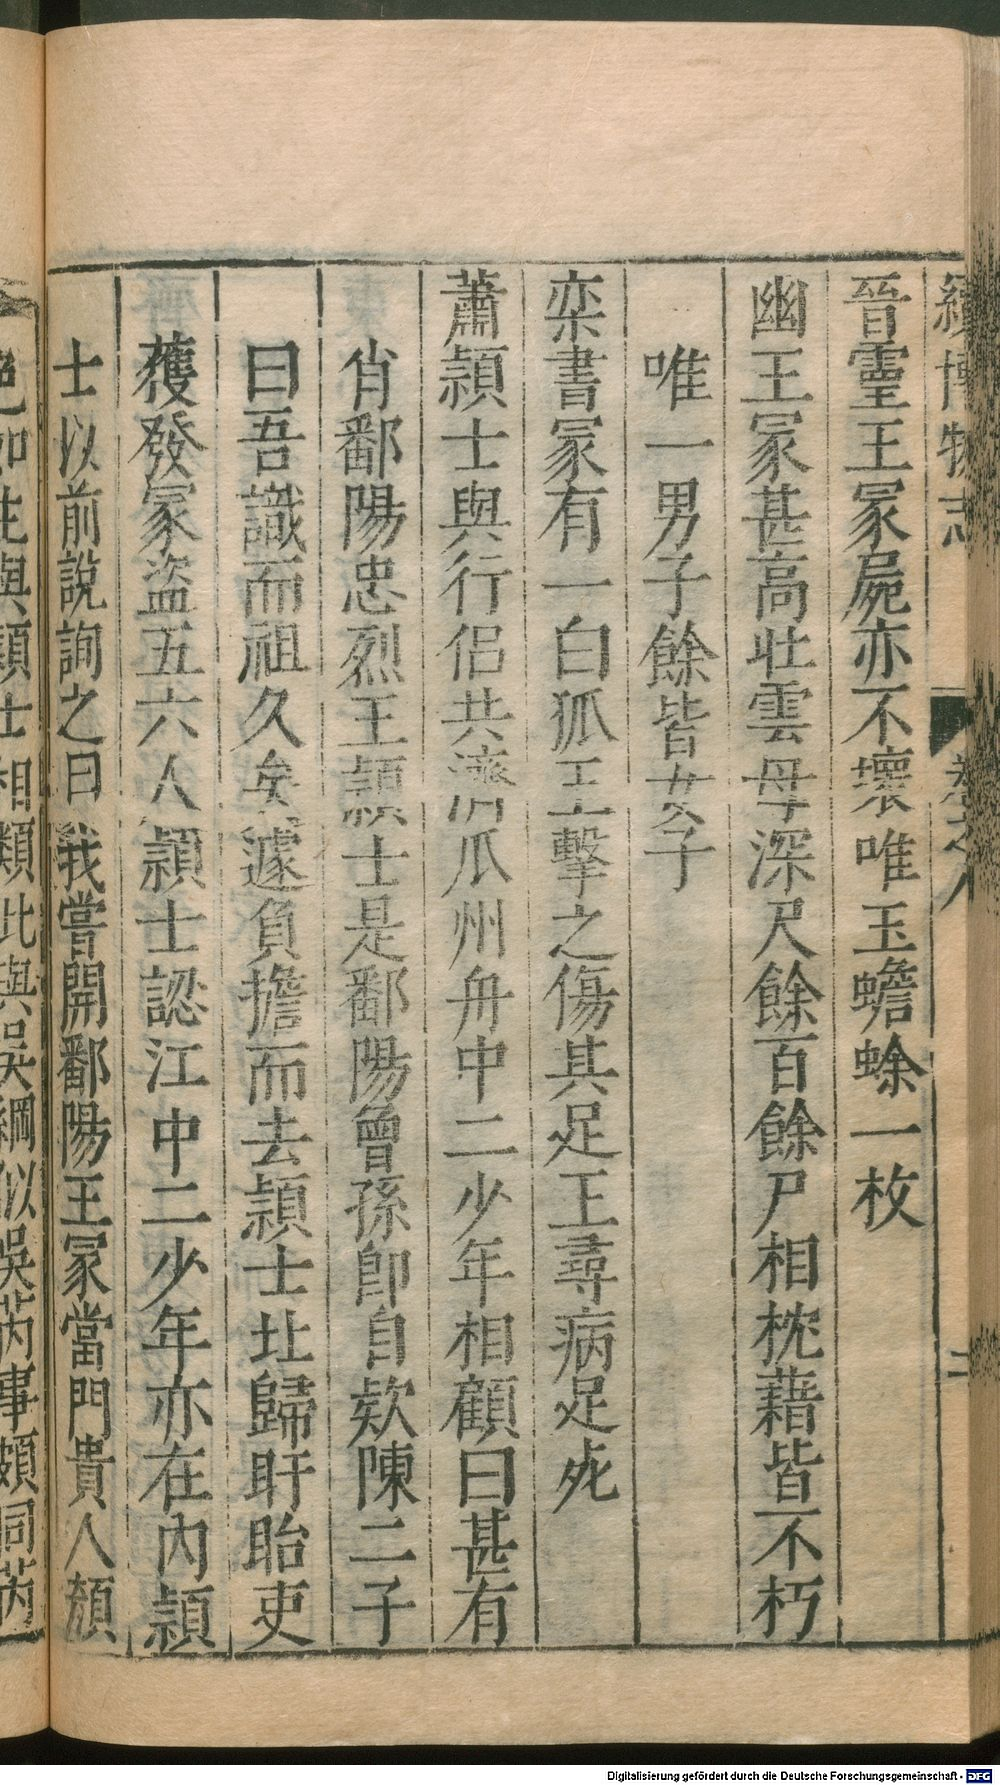 續博物志
卷之八
二
晉靈王冢屍亦不壞唯玉蟾蜍一枚
幽王冢甚高壯雲母深尺餘百餘尸相枕藉皆不朽
唯一男子餘皆女子
栾書冢有一白狐王擊之傷其足王尋病足死
蕭頴士與行侣共濟瓜州舟中二少年相顧曰甚有
肖鄱陽忠烈王頴士是鄱陽曾孫卽自欵陳二子
曰吾識而祖久矣遽負擔而去頴士北歸盱眙吏
獲發冢盜五六人頴士認江中二少年亦在內頴
士以前說詢之曰我嘗開鄱陽王冢當門貴人顏
色如生與頴士相類此與吳綱似吳芮事頗同芮
Digitalisierung gefördert durch die Deutsche Forschungsgemeinschaft - DFG